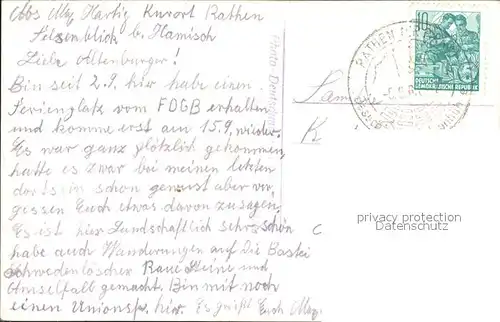 Abs. Mg. Hartig Kurort Rathen
Felsenblick b. Hamisch
Liebe Altenburger!
Bin seit 2.9. hier habe einen
Ferienplatz vom FDGB erhalten
und komme erst am 15.9. wieder.
Es war ganz plötzlich gekommen,
hatte es zwar bei meinen letzten
dortsein schon gewust aber ver,
gessen Euch etwas davon zusagen,
Es ist hier Landschaftlich sehr schön
habe auch Wanderungen auf die Bastei
Schwedenlöscher Raue Steine und
Amselfall gemacht. Bin mit noch
einen Unionsfr. hier. Es grüßt Euch Mag.
10
DEUTSCHE
DEMOKRATISCHE REPUBLIK
RATHEN
Fam
K
privacy protection
Datenschutz